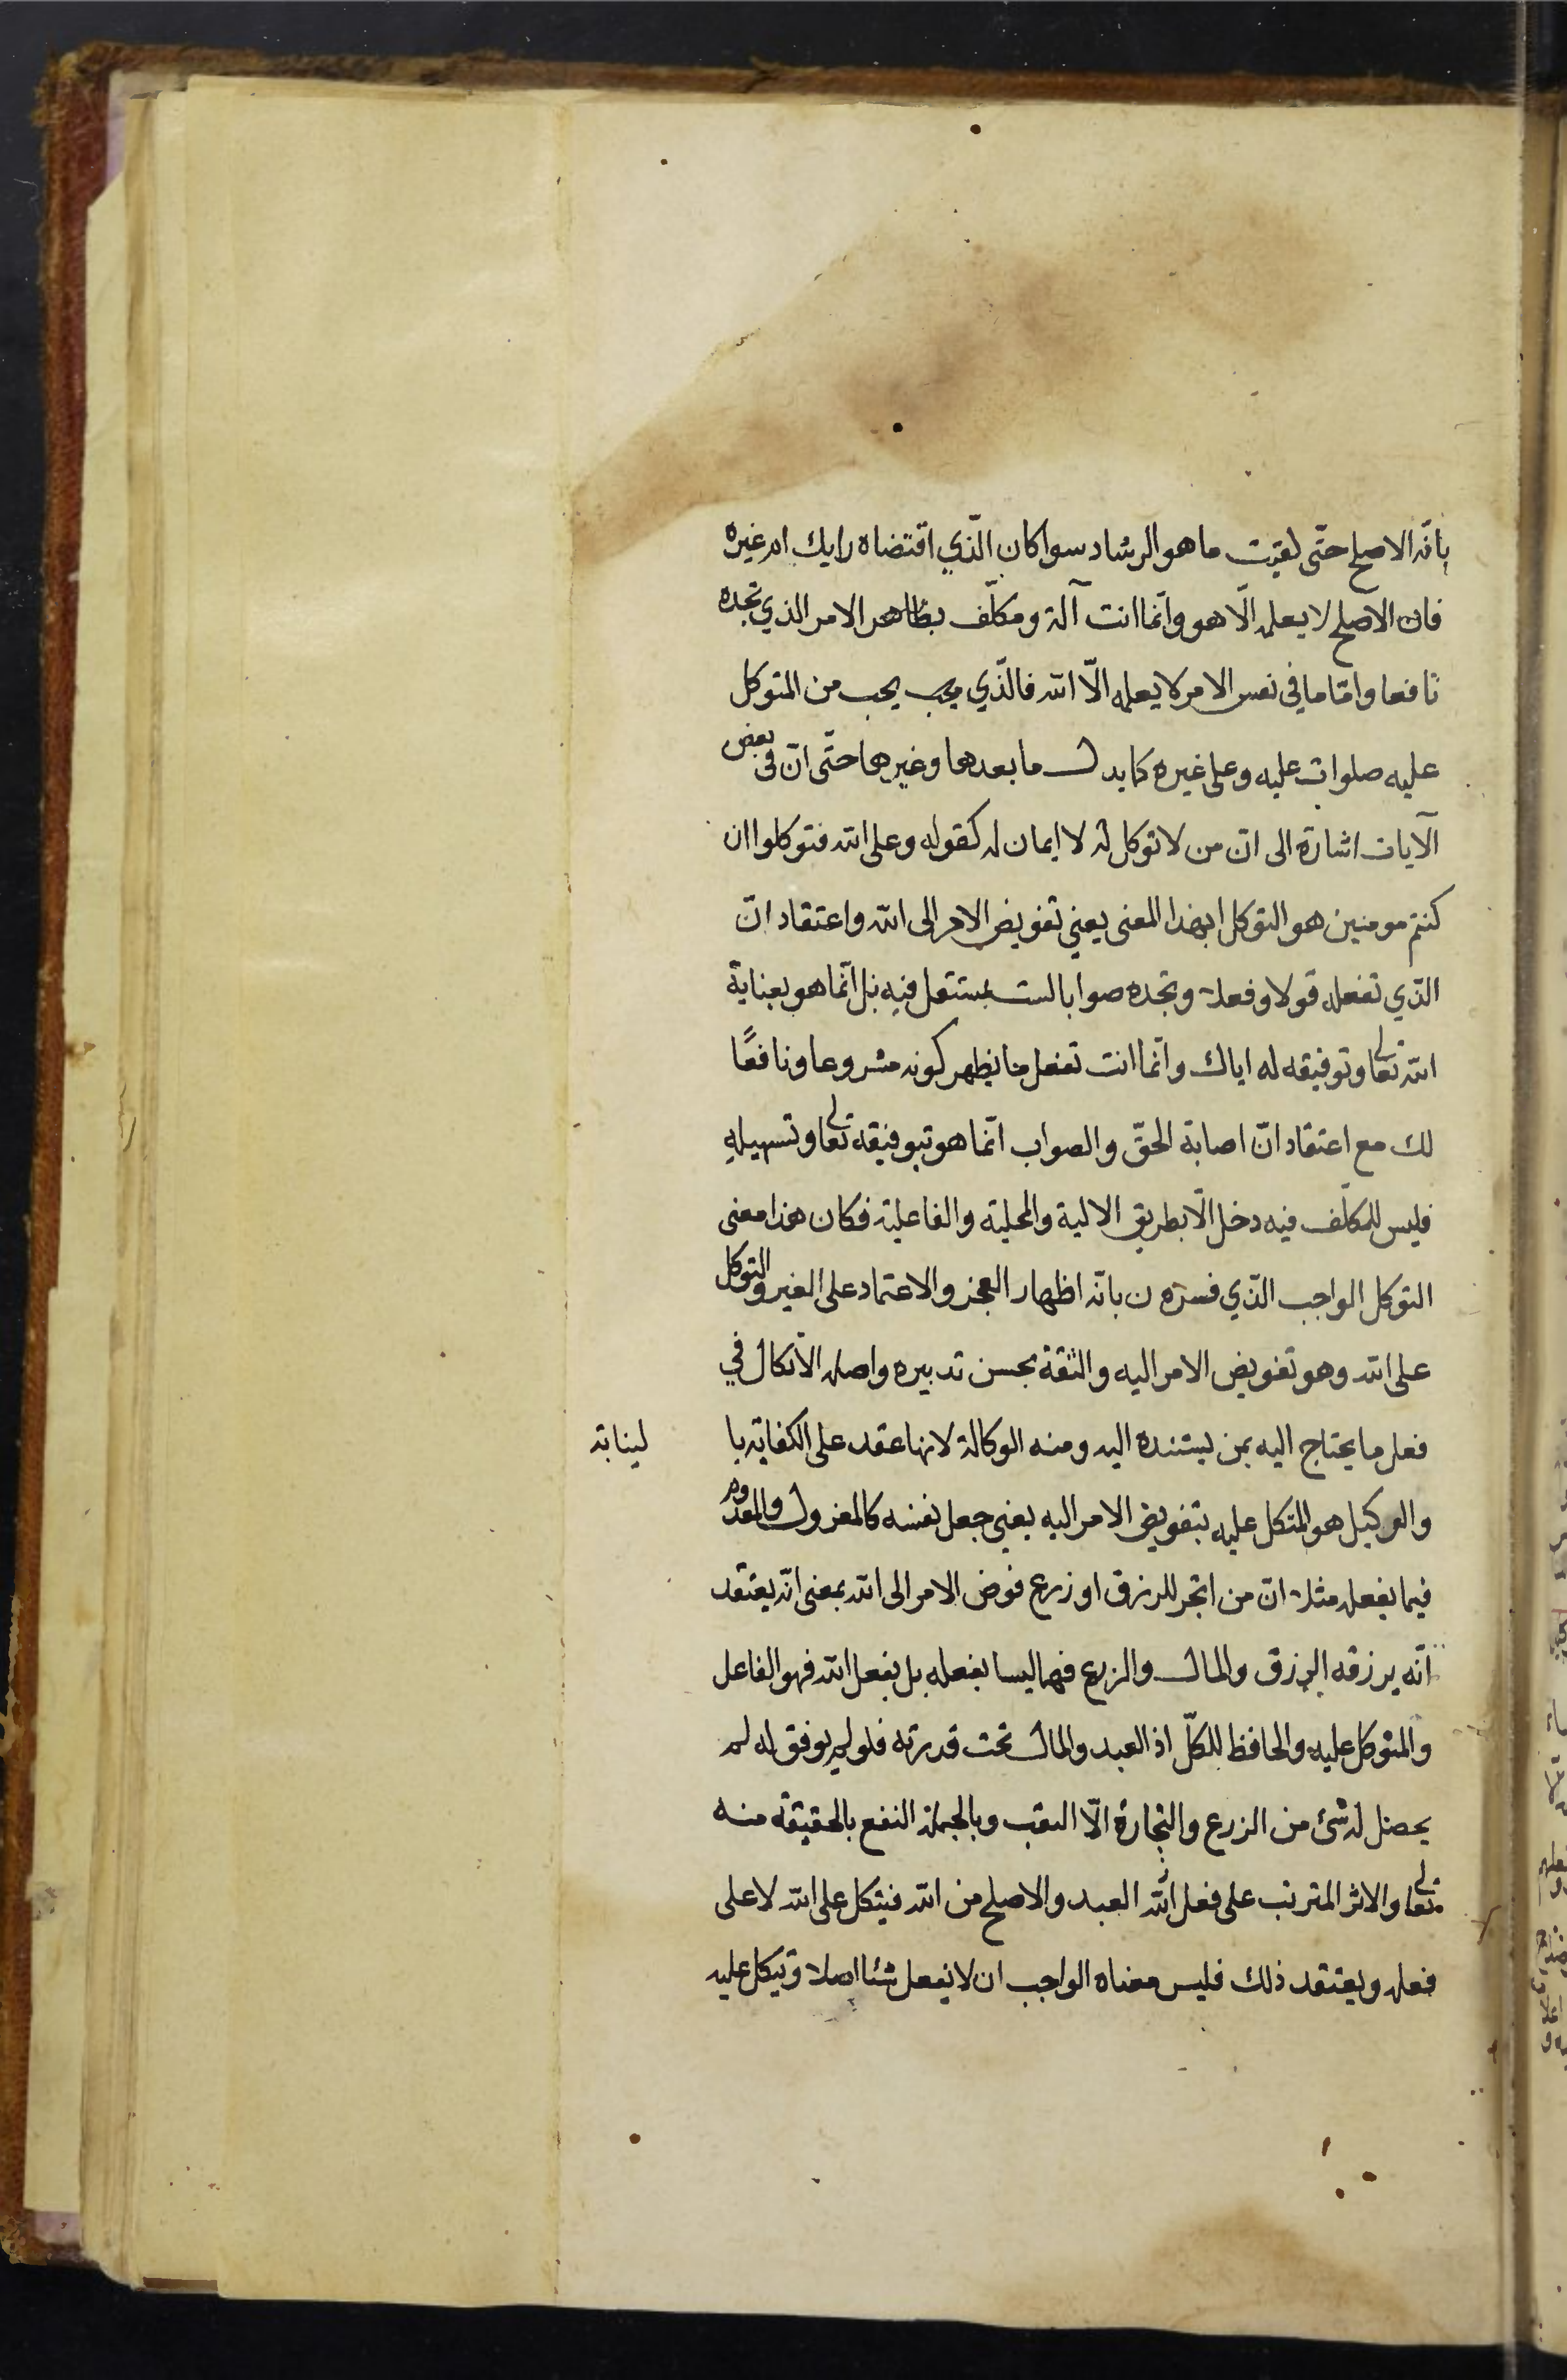 بانّه الاصلح حتّى لقيت ما هو الرشاد سوا كان الّذي اقتضاه رايك ام غيره
فان الاصلح لا يعلمه الّا هو وانّما انت آلة ومكلّف بظاهر الامر الذي تجده
نافعا وامّا ما في نفس الامر لا يعلمه الّا الله فالّذي يجب من المتوكل
عليه صلوات عليه وعلى غيره كما يدل ما بعدها وغيرها حتّى انّ في بعض
الآيات اشارة الى ان من لا توكل له لا ايمان له كقوله وعلى الله فتوكلوا ان
كنتم مومنين هو التوكل بهذا المعنى يعني تفويض الامر الى الله واعتقاد انّ
الذّي تفعله قولا وفعلا وتجده صوابا لست بمستقل فيه بل انّما هو بعناية
الله تعالى وتوفيقه له اياك وانّما انت تفعل ما يظهر كونه مشروعا ونافعًا
لك مع اعتقاد انّ اصابة الحقّ والصواب انّما هو بتوفيقه تعالى وتسهيله
فليس للمكلّف فيه دخل الّا بطريق الالية والمحلية والفاعلية فكان هذا معنى
التوكل الواجب الذّي فسره ن بانّه اظهار العجز والاعتماد على الغير والتوكل
على الله وهو تفويض الامر اليه والثقة بحسن تدبيره واصله الاتكال في
فعل ما يحتاج اليه بمن يستنده اليه ومنه الوكالة لانها عقد على الكفاية با لينابة
والوكيل هو المتكل عليه بتفويض الامر اليه يعني جعل نفسه كالمعزول والمعدوم
فيما يفعله مثلا ان من اتجر للرزق او زرع فوض الامر الى الله بمعنى انّه يعتقد
انّه يرزقه الرزق والمال والزرع فهما ليسا بفعله بل بفعل الله فهو الفاعل
والمتوكل عليه والحافظ للكلّ اذ العبد والمال تحت قدرته فلو لم يوفق له لم
يحصل له شئ من الزرع والتجارة الّا التعب وبالجملة النفع بالحقيقة منه
تعالى والاثر المترتب على فعل العبد والاصلح من الله فيتكل على الله لا على
فعله ويعتقد ذلك فليس معناه الواجب ان لا يفعل شئا اصلا ويتكل عليه